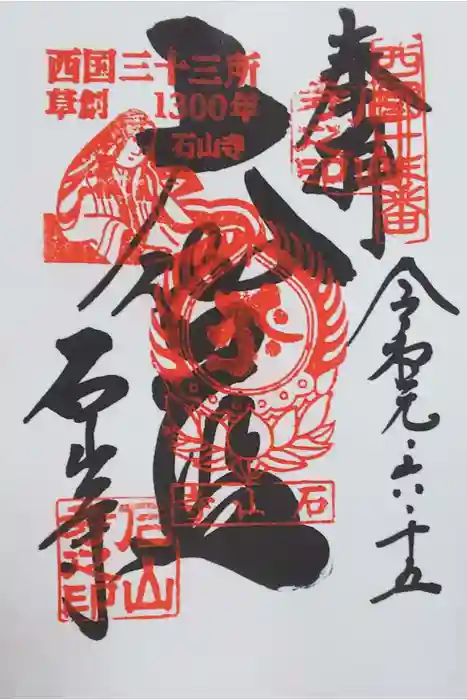 奉拝
西國十三番
令和元・六・十五
西国三十三所
草創 1300年
石山寺
大伽藍
石山寺
石山寺
石山